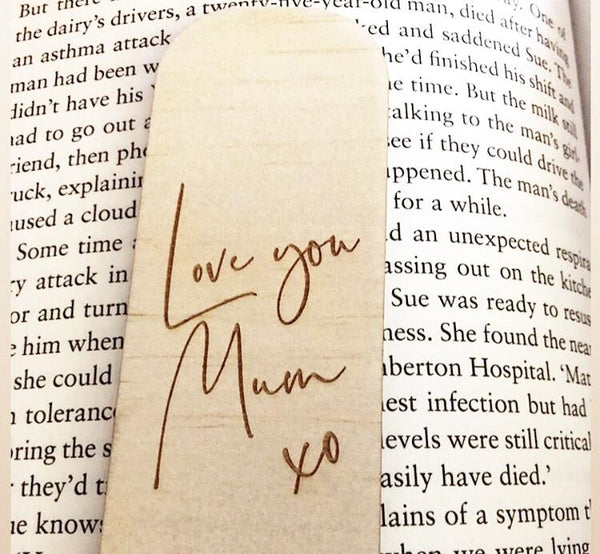 But there One of
the dairy's drivers, a twenty-five-year-old man, died after having
an asthma attack ked and saddened Sue. The
man had been w he'd finished his shift and
didn't have his e time. But the milk still
had to go out a alking to the man's girl
riend, then pho see if they could drive the
ruck, explainin appened. The man's death
used a cloud for a while.
Some time d an unexpected respira
ry attack in assing out on the kitche
or and turn Sue was ready to resus
e him when ness. She found the near
she could berton Hospital. 'Mat
toleranc est infection but had
ring the s levels were still critical
they'd t asily have died.'
e know lains of a symptom t
when we were lying
Love you
Mum
xo